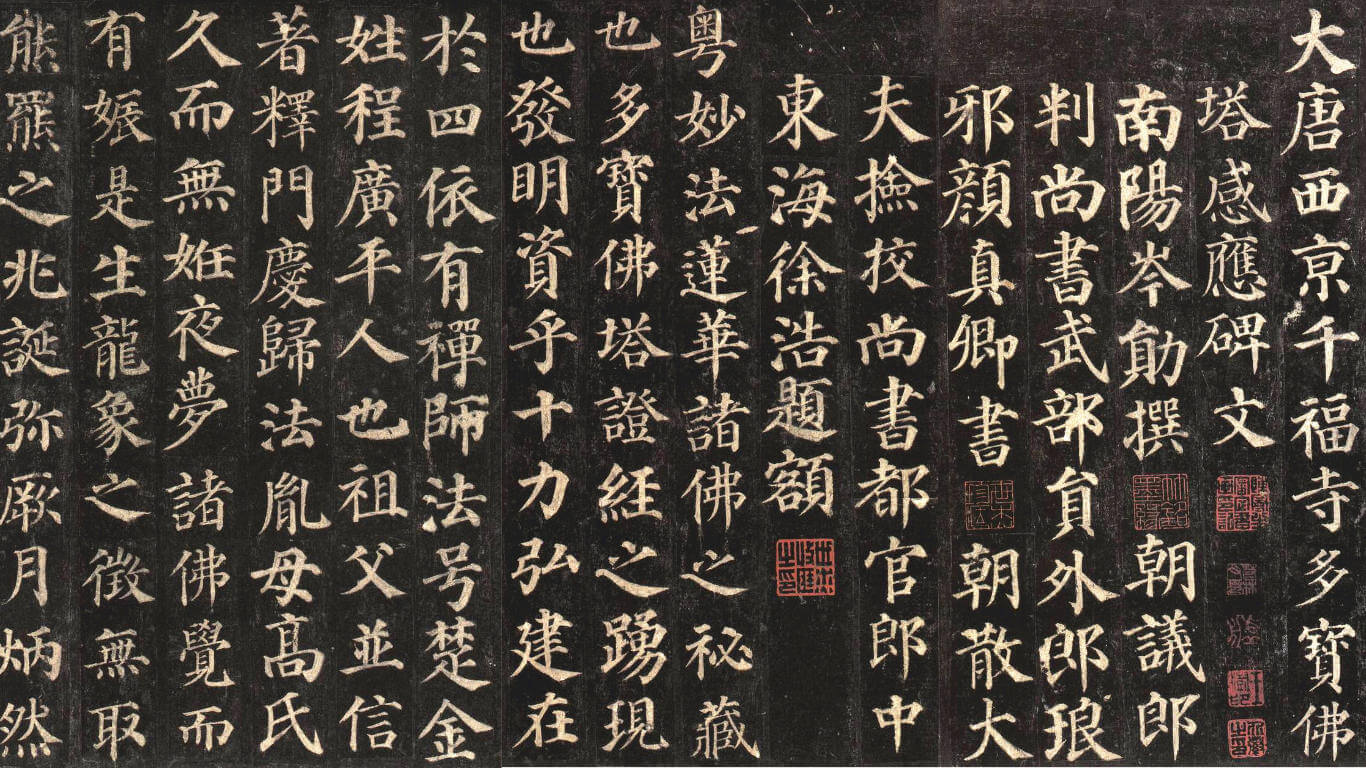 大唐西京千福寺多寶佛
塔感應碑文
南陽岑勛撰 朝議郎
判尚書武部貟外郎琅
邪顔真卿書 朝散大
夫撿挍尚書都官郎中
東海徐浩題額
粵妙法蓮華諸佛之祕藏
也多寶佛塔證經之踴現
也發明資乎十力弘建在
於四依有禪師法号楚金
姓程廣平人也祖父並信
著釋門慶歸法胤母髙氏
久而無姙夜夢諸佛覺而
有娠是生龍象之徵無取
熊羆之兆誕弥厥月炳然